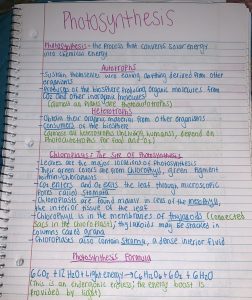 Photosynthesis
Photosynthesis - the process that converts solar energy
into chemical energy
Autotrophs
- Sustain themselves w/o eating anything derived from other
organisms
- Producers of the biosphere, produce organic molecules from
CO2 and other inorganic molecules
(almost all plants are photoautotrophs)
Heterotrophs
- Obtain their organic material from other organisms
- Consumers of the biosphere
(almost all heterotrophs (including humans), depend on
photoautotrophs for food and O2)
Chloroplasts: The Site of Photosynthesis
- Leaves are the major locations of photosynthesis
- Their green colors are from chlorophyll, green pigment
within chloroplasts
- CO2 enters and O2 exits the leaf through microscopic
pores called stomata
- Chloroplasts are found mainly in cells of the mesophyll,
the interior tissue of the leaf
- Chlorophyll is in the membranes of thylakoids (connected
sacs in the chloroplast); thylakoids may be stacked in
columns called grana
- Chloroplasts also contain stroma, a dense interior fluid
Photosynthesis Formula
6 CO2 + 12 H2O + Light energy → C6H12O6 + 6 O2 + 6 H2O
(This is an endergonic process; the energy boost is
provided by light)